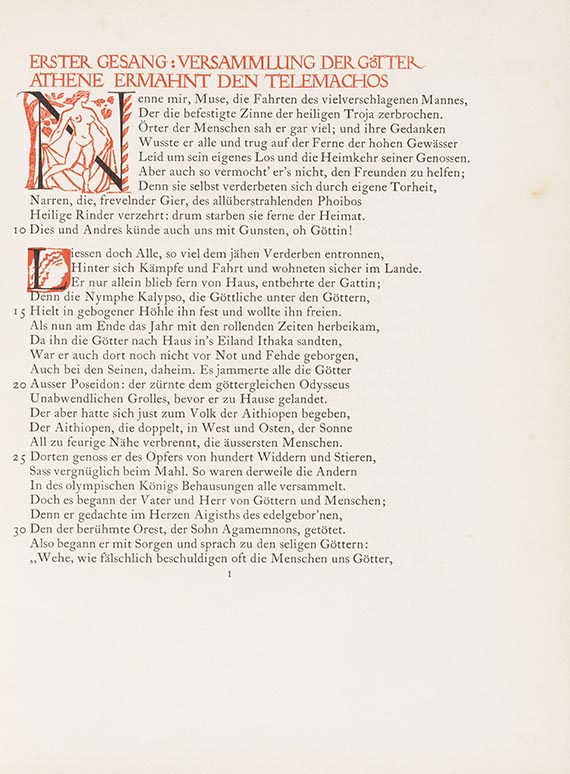 ERSTER GESANG: VERSAMMLUNG DER GÖTTER
ATHENE ERMAHNT DEN TELEMACHOS
Nenne mir, Muse, die Fahrten des vielverschlagenen Mannes,
Der die befestigte Zinne der heiligen Troja zerbrochen.
Örter der Menschen sah er gar viel; und ihre Gedanken
Wusste er alle und trug auf der Ferne der hohen Gewässer
Leid um sein eigenes Los und die Heimkehr seiner Genossen.
Aber auch so vermocht' er's nicht, den Freunden zu helfen;
Denn sie selbst verderbeten sich durch eigene Torheit,
Narren, die, frevelnder Gier, des allüberstrahlenden Phoibos
Heilige Rinder verzehrt: drum starben sie ferne der Heimat.
10 Dies und Andres künde auch uns mit Gunsten, oh Göttin!
Liessen doch Alle, so viel dem jähen Verderben entronnen,
Hinter sich Kämpfe und Fahrt und wohneten sicher im Lande.
Er nur allein blieb fern von Haus, entbehrte der Gattin;
Denn die Nymphe Kalypso, die Göttliche unter den Göttern,
15 Hielt in gebogener Höhle ihn fest und wollte ihn freien.
Als nun am Ende das Jahr mit den rollenden Zeiten herbeikam,
Da ihn die Götter nach Haus in's Eiland Ithaka sandten,
War er auch dort noch nicht vor Not und Fehde geborgen,
Auch bei den Seinen, daheim. Es jammerte alle die Götter
20 Ausser Poseidon: der zürnte dem göttergleichen Odysseus
Unabwendlichen Grolles, bevor er zu Hause gelandet.
Der aber hatte sich just zum Volk der Aithiopen begeben,
Der Aithiopen, die doppelt, in West und Osten, der Sonne
All zu feurige Nähe verbrennt, die äussersten Menschen.
25 Dorten genoss er des Opfers von hundert Widdern und Stieren,
Sass vergnüglich beim Mahl. So waren derweile die Andern
In des olympischen Königs Behausungen alle versammelt.
Doch es begann der Vater und Herr von Göttern und Menschen;
Denn er gedachte im Herzen Aigisths des edelgebor'nen,
30 Den der berühmte Orest, der Sohn Agamemnons, getötet.
Also begann er mit Sorgen und sprach zu den seligen Göttern:
„Wehe, wie fälschlich beschuldigen oft die Menschen uns Götter,
1